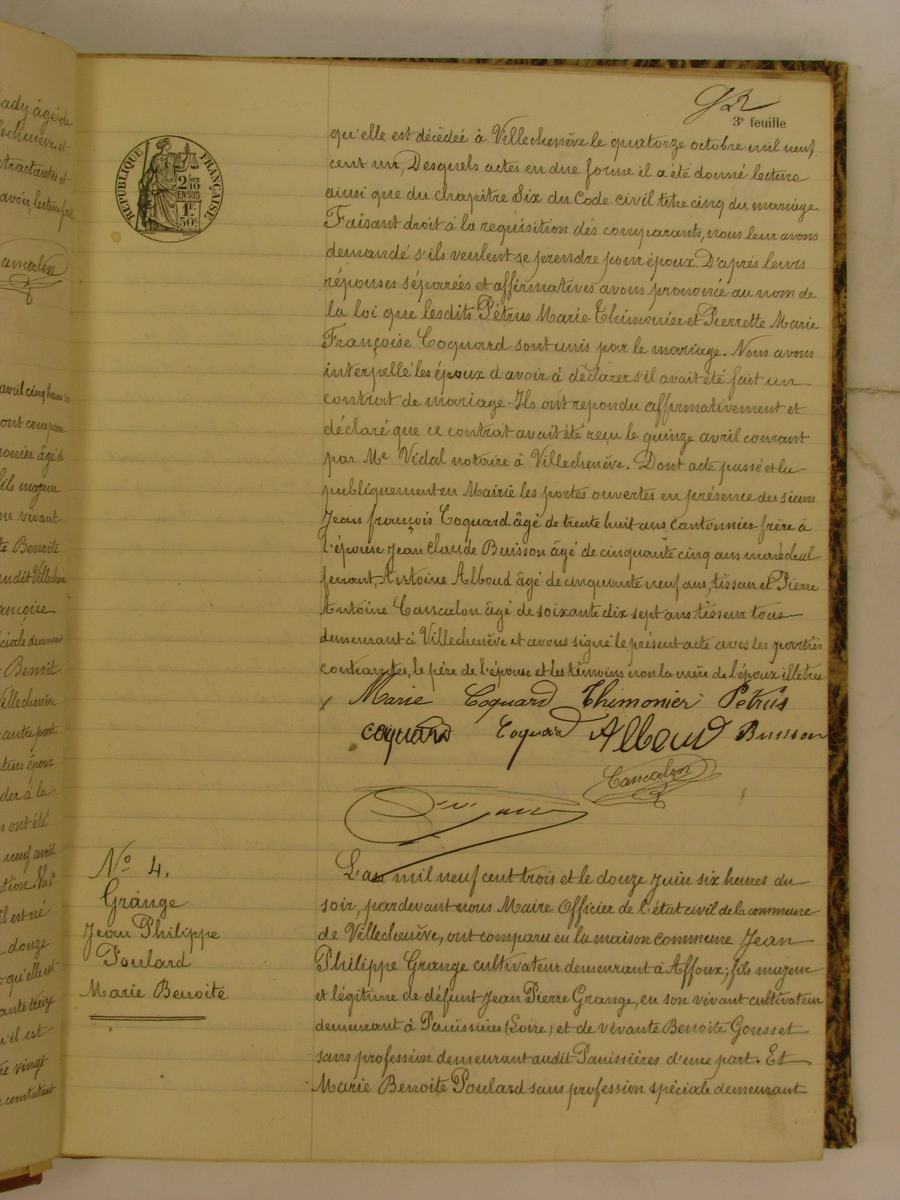 ady âgé de
échenève et
tractantes et
avoir, lecture fait
Cancalon
avril cinq heures
ont comparu
monier âgé de
fils majeur
on vivant
te Benoite
audit Villechen
ançoise
éciale demeurant
Benoit
Villechenève
autre part
futurs époux
der à la
s ont été
neuf avril
il est né
douze
qu'elle est
ante treize
u'il est
re vingt
constatant
3e feuille
RÉPUBLIQUE FRANÇAISE
2/10 EN SUS
1F 50c
qu'elle est décédée à Villechenève le quatorze octobre mil neuf
cent un, Desquels actes en due forme il a été donné lecture
ainsi que du chapitre Six du Code civil titre cinq du mariage
Faisant droit à la requisition des comparants, nous leur avons
demandé s'ils veulent se prendre pour époux. D'après leurs
réponses séparées et affirmatives avons prononcé au nom de
la loi que lesdits Pétrus Marie Thimonier et Pierrette Marie
Françoise Coquard sont unis par le mariage. Nous avons
interpellé les époux d'avoir à déclarer s'il avait été fait un
contrat de mariage. Ils ont repondu affirmativement et
déclaré que ce contrat avait été reçu le quinze avril courant
par Me Vidal notaire à Villechenève. Dont acte passé et lu
publiquement en Mairie les portes ouvertes en présence des sieurs
Jean françois Coquard âgé de trente huit ans Cantonnier frère à
l'épouse Jean Claude Buisson âgé de cinquante cinq ans maréchal
ferrant, Antoine Alboud âgé de cinquante neuf ans, tisseur et Pierre
Antoine Cancalon âgé de soixante dix sept ans tisseur tous
demeurant à Villechenève et avons signé le présent acte avec les parties
contractantes, le père de l'épouse et les témoins non la mère de l'époux illetrée
Marie Coquard Thimonier Petrus
coquard Coquard Alboud Buisson
Cancalon
No 4.
Grange
Jean Philippe
Poulard
Marie Benoite
L'an mil neuf cent trois et le douze Juin six heures du
soir, pardevant nous Maire Officier de l'état civil de la commune
de Villechenève, ont comparu en la maison commune Jean
Philippe Grange cultivateur demeurant à Affoux; fils majeur
et légitime de défunt Jean Pierre Grange, en son vivant cultivateur
demeurant à Panissières (Loire) et de vivante Benoite Gousset
sans profession demeurant audit Panissières d'une part. Et
Marie Benoite Poulard sans profession spéciale demeurant